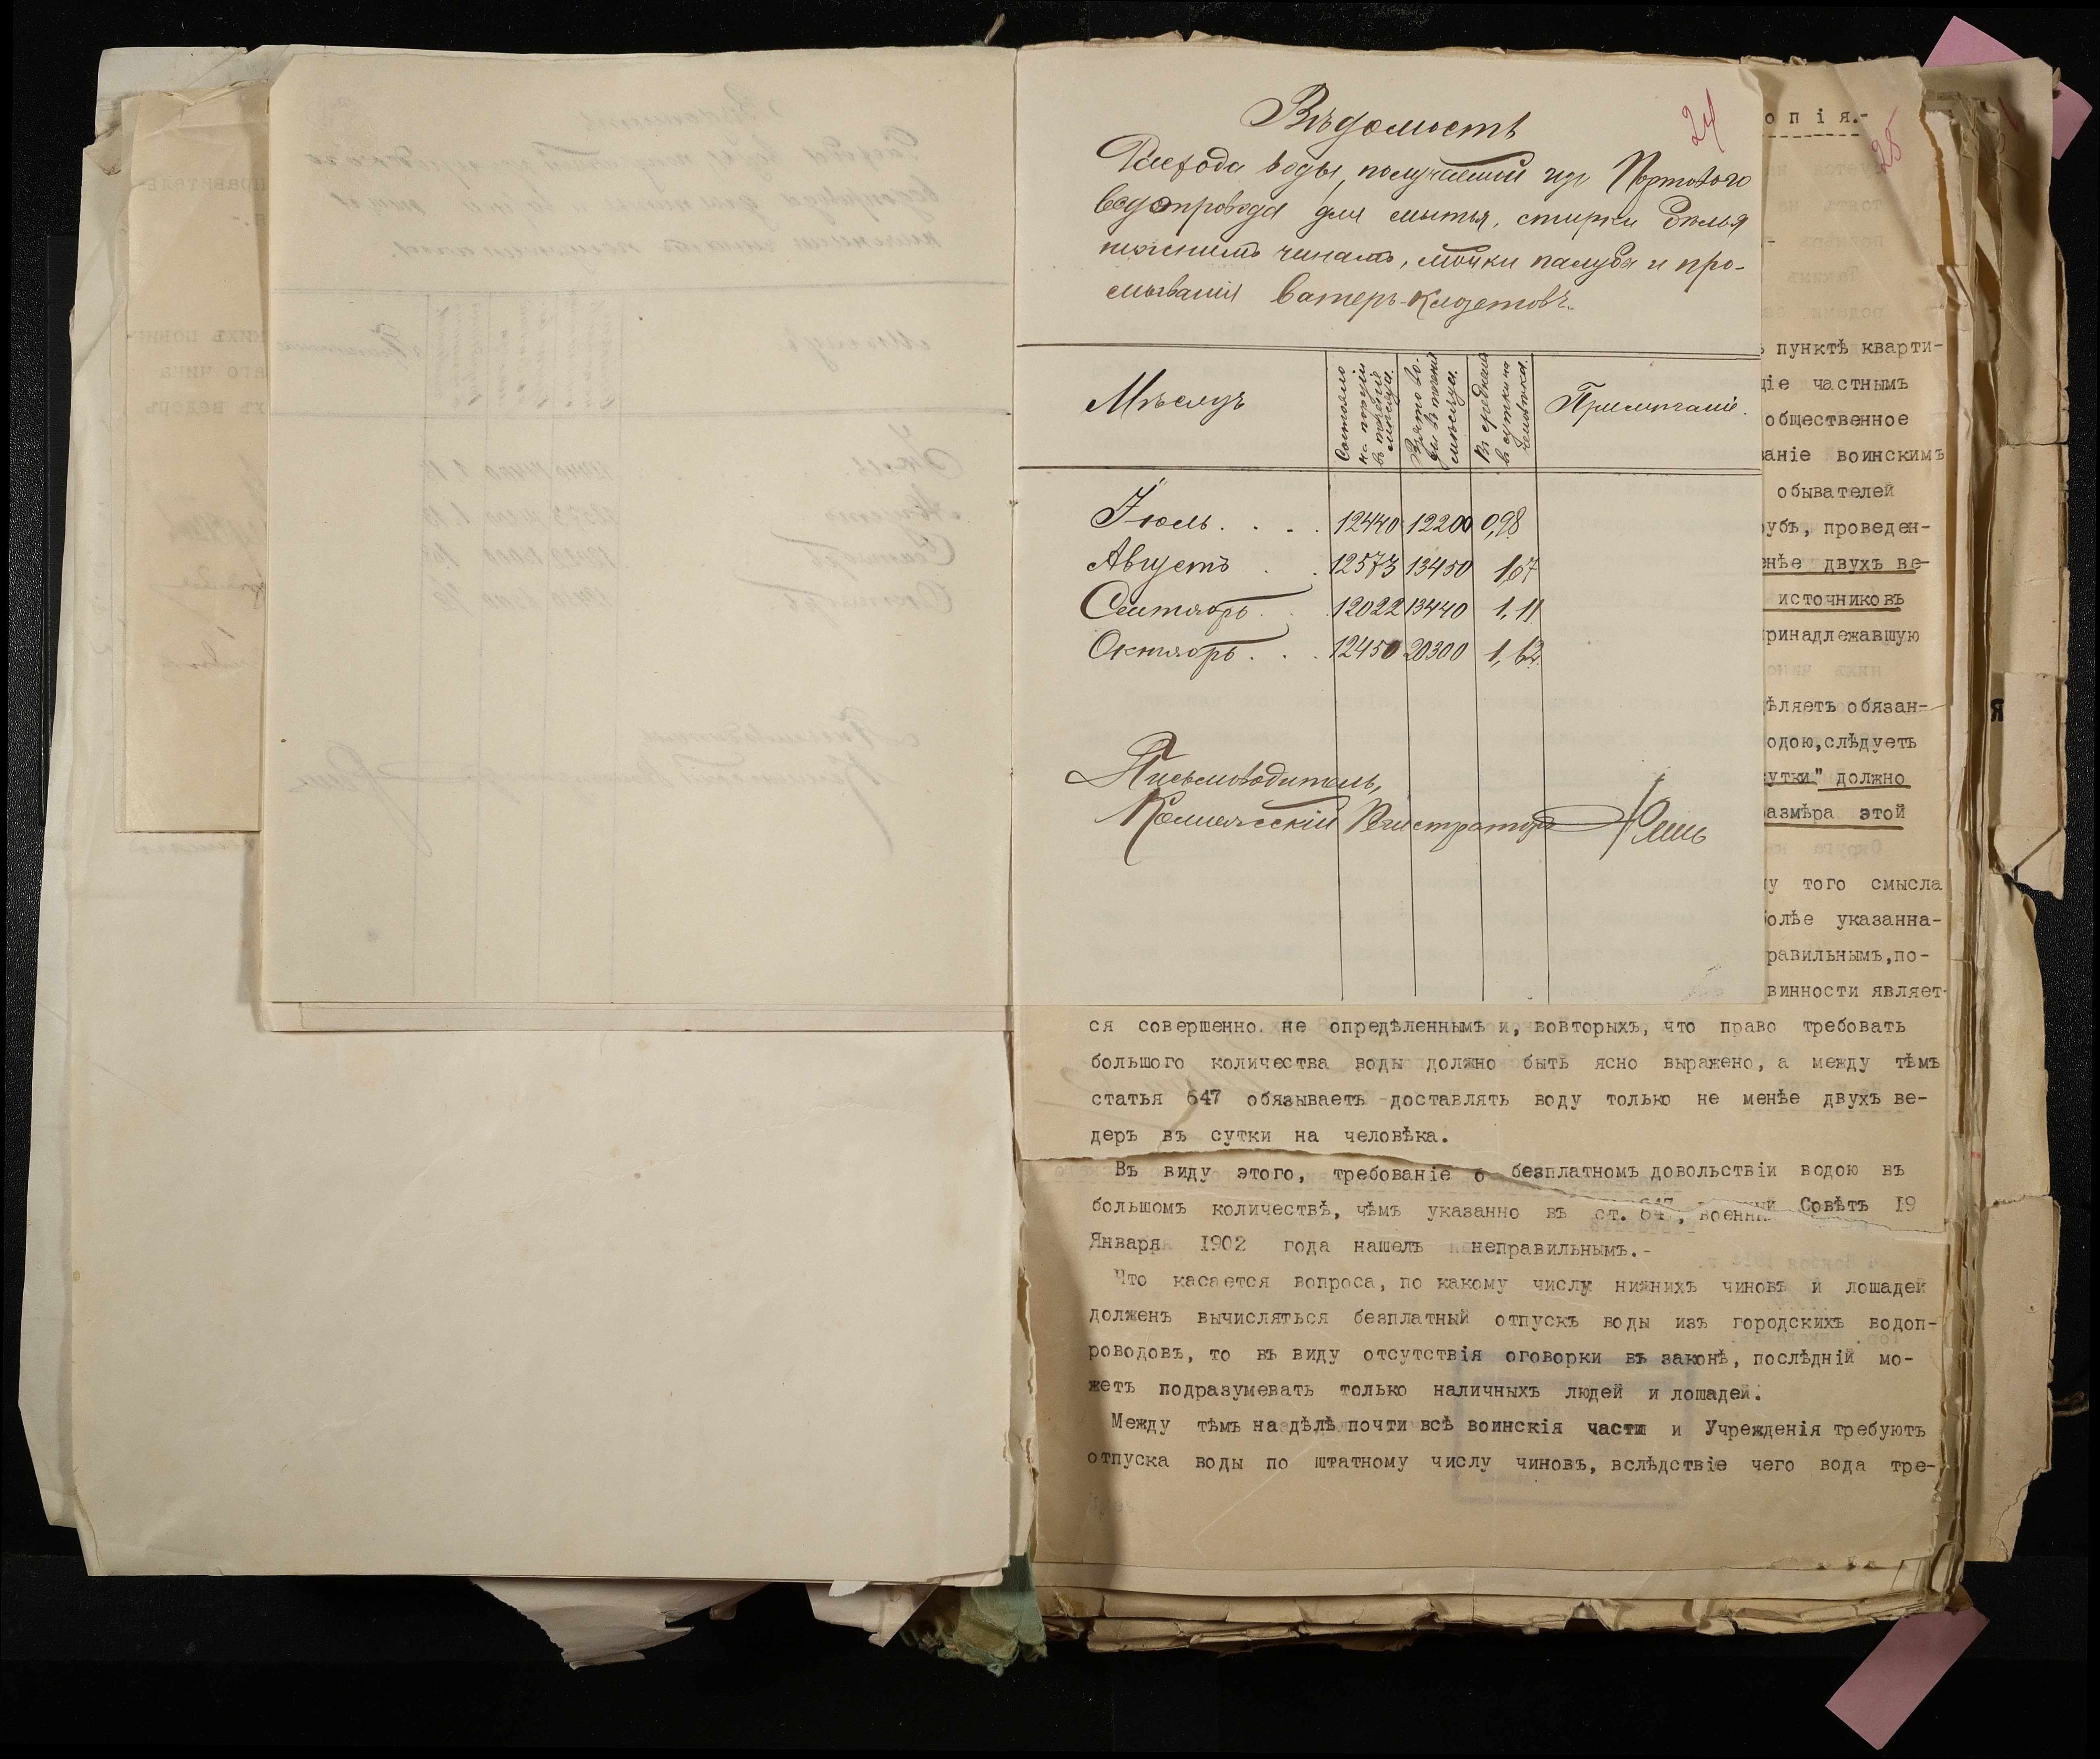 Вѣдомость
24
Расхода воды, получаемой изъ Портового
водопровода для мытья, стирки бѣлья
нижнимъ чинамъ, мойки палубы и про-
мыванія ватеръ-клозетовъ.
Мѣсяцъ
Состояло на порціи въ теченіе мѣсяца.
Взято во-ды въ теченіи мѣсяца.
Въ среднемъ въ сутки на человѣка.
Примѣчаніе.
Іюль. . . . 12440 12200 0,98
Августъ . . 12573 13450 1,07
Сентябрь. . 12022 13440 1,11
Октябрь. . . 12450 20300 1,62
Письмоводитель,
Коллежскій Регистраторъ
опія.-
25
пунктѣ кварти-
ціе частнымъ
общественное
ваніе воинскимъ
обывателей
рубъ, проведен-
енѣе двухъ ве-
источниковъ
принадлежавшую
дѣляетъ обязан-
одою, слѣдуетъ
сутки" должно
размѣра этой
у того смысла
болѣе указанна-
равильнымъ, по-
винности являет-
ся совершенно не опредѣленнымъ и, вовторыхъ, что право требовать
большого количества воды должно быть ясно выражено, а между тѣмъ
статья 647 обязываетъ доставлять воду только не менѣе двухъ ве-
деръ въ сутки на человѣка.
Въ виду этого, требованіе о безплатномъ довольствіи водою въ
большомъ количествѣ, чѣмъ указанно въ ст. 647, военный Совѣтъ 19
Января 1902 года нашелъ неправильнымъ.-
Что касается вопроса, по какому числу нижнихъ чиновъ и лошадей
долженъ вычисляться безплатный отпускъ воды изъ городскихъ водоп-
роводовъ, то въ виду отсутствія оговорки въ законѣ, послѣдній мо-
жетъ подразумевать только наличныхъ людей и лошадей.
Между тѣмъ на дѣлѣ почти всѣ воинскія части и Учрежденія требуютъ
отпуска воды по штатному числу чиновъ, вслѣдствіе чего вода тре-